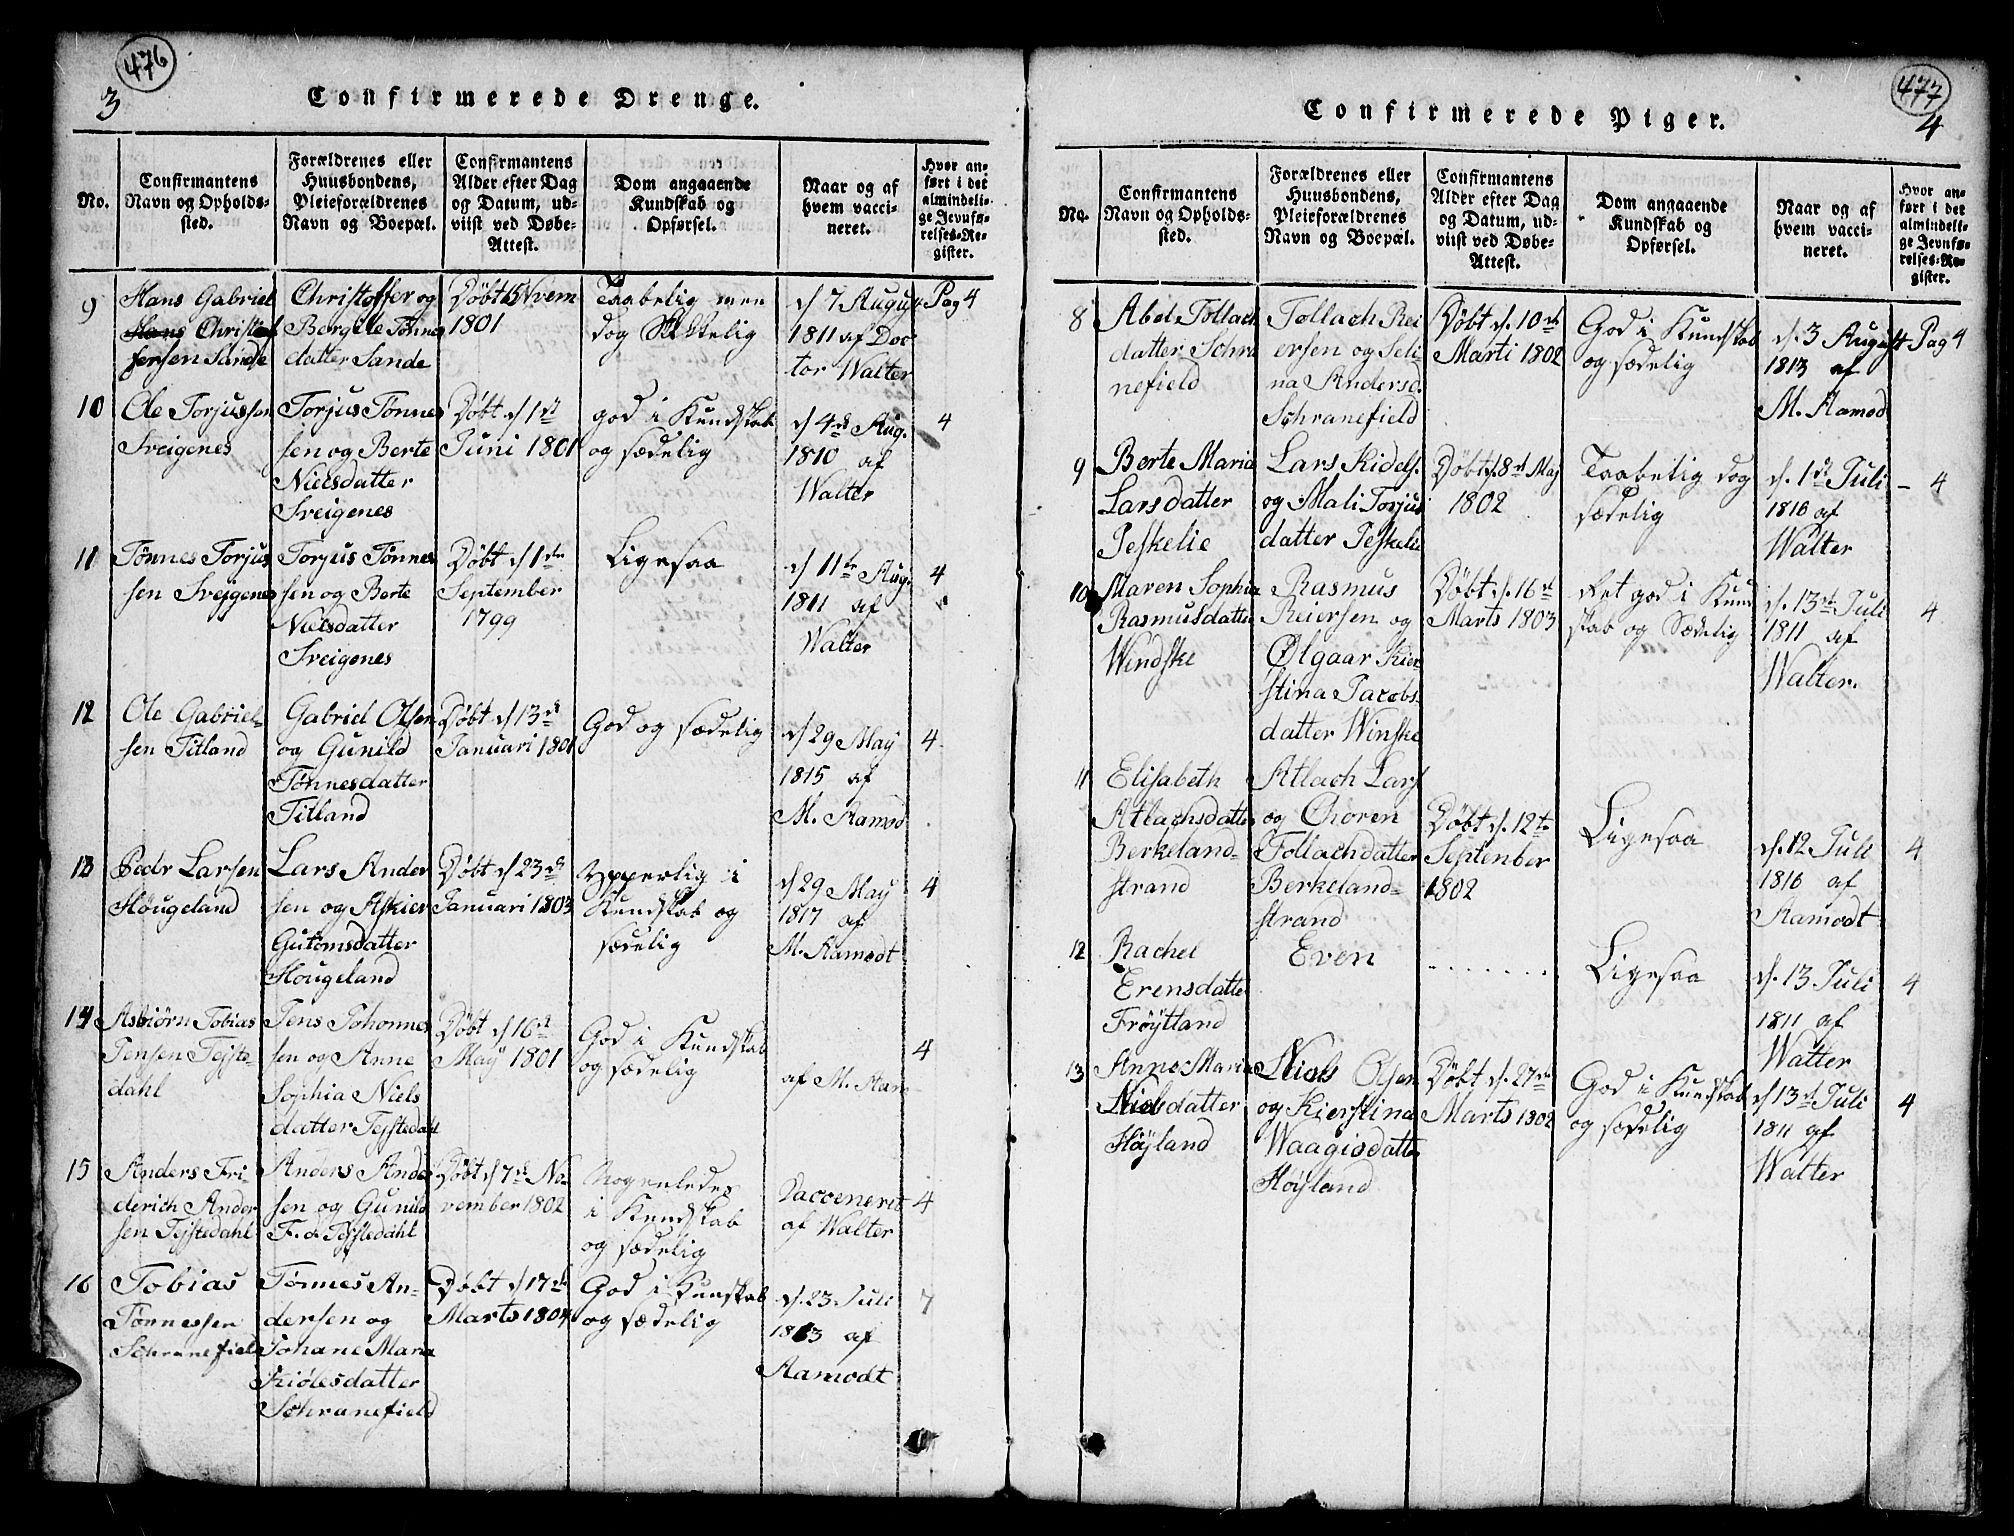 476
3
Confirmerede Drenge.
No.
Confirmantens
Navn og Opholds-
sted.
Forældrenes eller
Huusbondens,
Pleieforældrenes
Navn og Boepæl.
Confirmantens
Alder efter Dag
og Datum, ud-
viist ved Døbe-
Attest.
Dom angaaende
Kundskab og
Opførsel.
Naar og af
hvem vacci-
neret.
Hvor an-
ført i det
almindeli-
ge Jevnfø-
relses-Re-
gister.
9
Hans Gabriel
Christof
fersen Sande
Christoffer og
Bergite Tønnes
datter Sande
Døbt 15 Nvem
1801
Taabelig men
dog Skikkelig
d 7 August
1811 af Doc
tor Walter
Pag 4
10
Ole Torjussen
Sveigenes
Torjus Tønnes
sen og Berte
Nielsdatter
Sveigenes
Døbt d 1st
Juni 1801
god i Kundskab
og sædelig
d 4de Aug.
1810 af
Walter
4
11
Tønnes Torjus
sen Svejgenes
Torjus Tønnes
sen og Berte
Nielsdatter
Sveigenes
Døbt d 1ste
September
1799
Ligesaa
d 11te Aug.
1811 af
Walter
4
12
Ole Gabriel-
sen Titland
Gabriel Olsen
og Gunild
Tønnesdatter
Titland
Døbt d 13de
Januari 1801
God og sædelig
d 29 May
1815 af
M. Aamod
4
13
Pedr Larsen
Hougeland
Lars Ander
sen og Askier
Gutomsdatter
Hougeland
Døbt d 23de
Januari 1803
Ypperlig i
Kundskab og
sædelig
d 29 May
1817 af
M. Aamodt
4
14
Asbiørn Tobias
Jensen Tejste-
dahl
Jens Johannes
sen og Anne
Sophia Niels
datter Tejstedahl
Døbt d 16de
Maÿ 1801
God i Kundskab
og sædelig
af M. Aam
4
15
Anders Fri
derich Ander
sen Tejstedahl
Anders Ander
sen og Gunild
F. d. Tejstedahl
Døbt d 7de No
vember 1802
Nogenledes
i Kundskab
og sædelig
Vaccenerit
af Walter
4
16
Tobias
Tønnessen
Schranefield
Tønnes An-
dersen og
Johane Maria
Kiølesdatter
Schranefield
Døbt d 17de
Marts 1804
God i Kundskab
og sædelig
d. 23 Juli
1813 af
Aamodt
7
477
4
Confirmerede Piger.
No.
Confirmantens
Navn og Opholds-
sted.
Forældrenes eller
Huusbondens,
Pleieforældrenes
Navn og Boepæl.
Confirmantens
Alder efter Dag
og Datum, ud-
viist ved Døbe-
Attest.
Dom angaaende
Kundskab og
Opførsel.
Naar og af
hvem vacci-
neret.
Hvor an-
ført i det
almindeli-
ge Jevnfø-
relses-Re-
gister.
8
Abel Tollach
datter Schra
nefield
Tollach Rei
ersen og Seli
na Andersd.
Schranefield
Døbt d. 10de
Marti 1802
God i Kundskab
og sædelig
d. 3 August
1813 af
M. Aamod
Pag 4
9
Berte Maria
Larsdatter
Peskelie
Lars Kidels.
og Mali Torjus
datter Peskelie
Døbt d. 8de Maj
1802
Taabelig dog
sædelig
d. 1de Juli
1816 af
Walter
- 4
10
Maren Sophia
Rasmusdatter
Windske
Rasmus
Reiersen og
Ølgaar Kier-
stina Jacobs-
datter Winske
Døbt d. 16de
Marts 1803
Ret god i Kund
skab og Sædelig
d. 13de Juli
1811 af
Walter.
4
11
Elisabeth
Atlachsdatter
Berkeland-
strand
Atlach Lars
og Choren
Tollachdatter
Berkeland-
strand
Døbt d. 12te
September
1802
Ligesaa
d. 12 Juli
1816 af
Aamodt
4
12
Rachel
Evensdatter
Frøÿtland
Even
. . . . . . .
Ligesaa
d. 13 Juli
1811 af
Walter
4
13
Anne Maria
Nielsdatter
Høÿland
Niels Olsen
og Kierstina
Waagisdatter
Høÿland
Døbt d. 27de
Marts 1802
God i Kundskab
og sædelig
d 13de Juli
1811 af
Walter
4